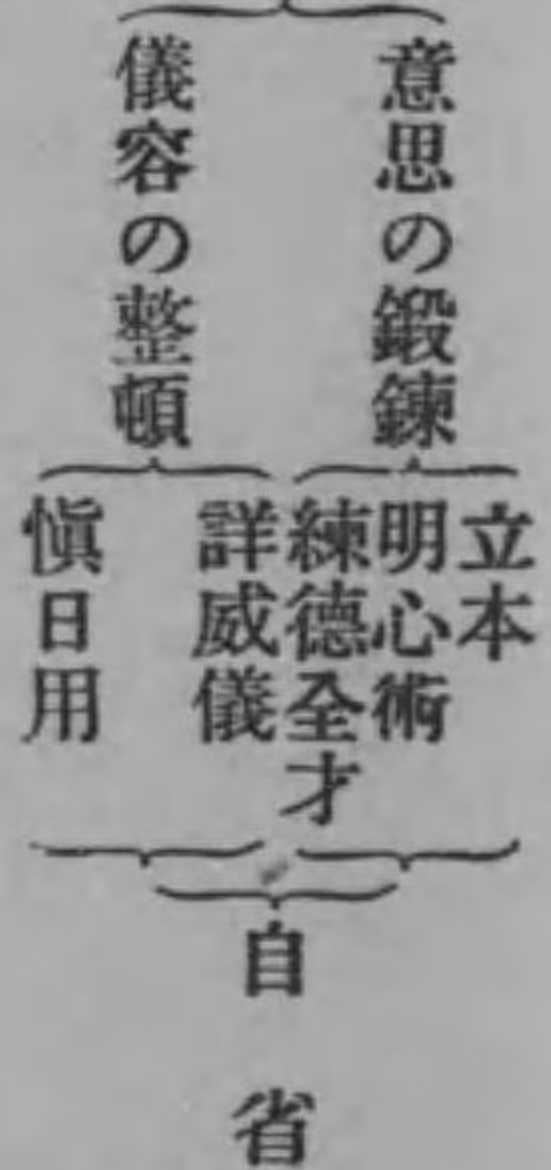 意思の鍛鍊
立本
明心術
練德全才
儀容の整頓
詳威儀
愼日用
自省